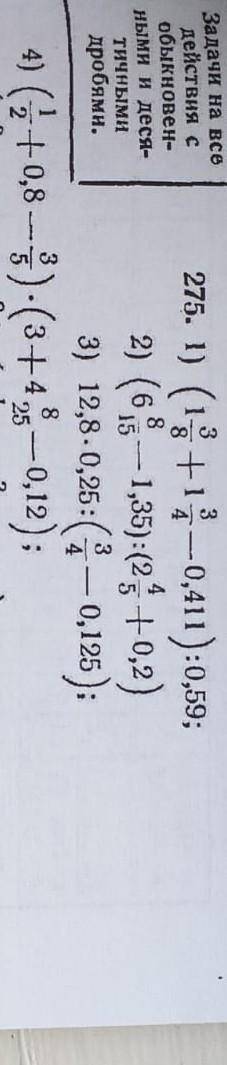 Задачи на все
действия с
обыкновен-
ными и деся-
тичными
дробями.
275. 1) (1 3/8 + 1 3/4 — 0,411) : 0,59;
2) (6 8/15 — 1,35) : (2 4/5 + 0,2)
3) 12,8 · 0,25 : (3/4 — 0,125);
4) (1/2 + 0,8 — 3/5) · (3 + 4 8/25 — 0,12);